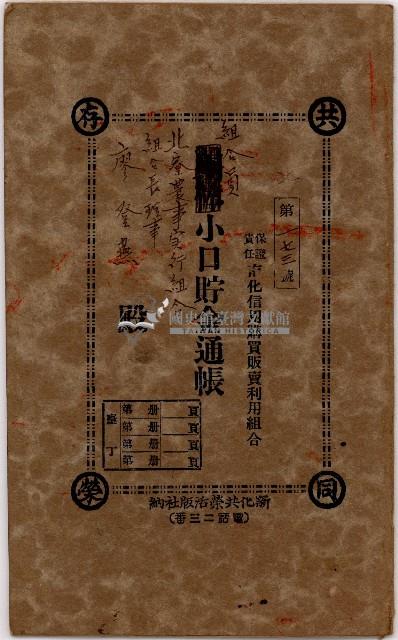 共存同榮
組合員
第一七三號
保證責任善化信用購買販賣利用組合
小口貯金通帳
北寮農事實行組合
組合長理事
廖登燕
殿
第 册 頁
第 册 頁
第 册 頁
第 册 頁
新化共榮活版社納
(電話二三番)
國史館臺灣文獻館
TAIWAN HISTORICA